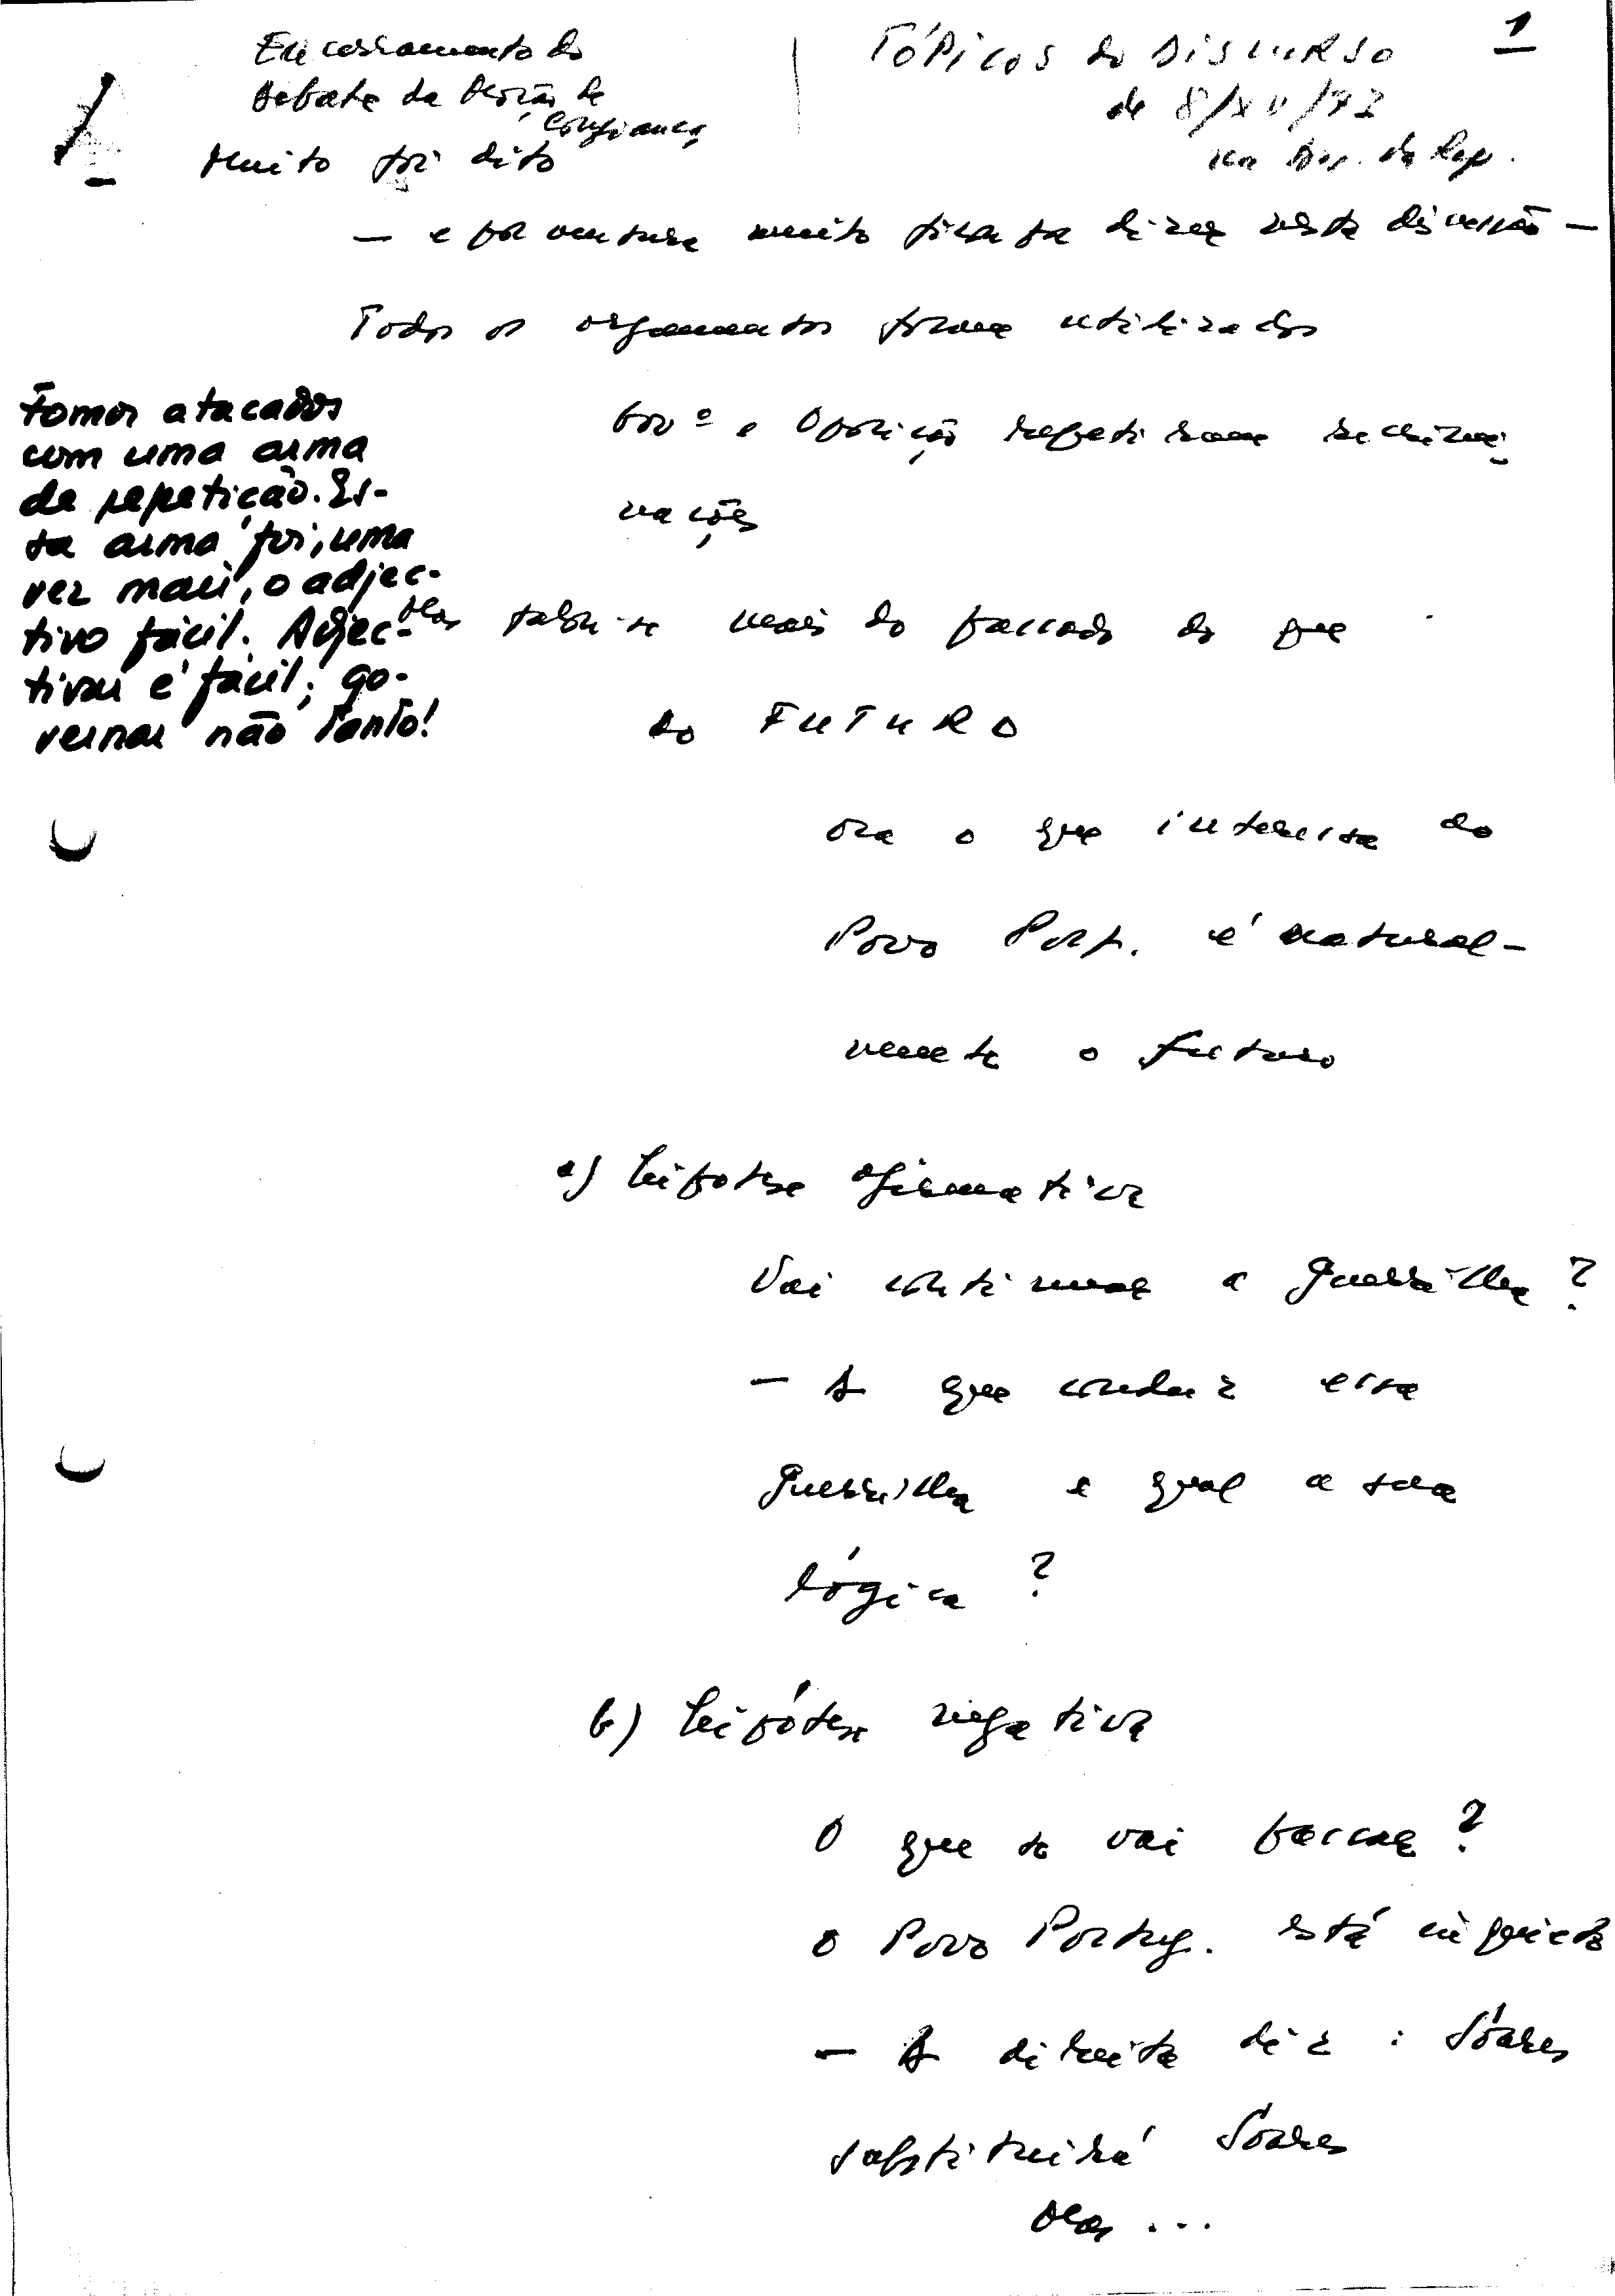 1
Encerramento do
Debate da Moção de
Confiança
Tópicos do Discurso
de 8/XII/77
na Ass. da Rep.
Muito foi dito
— e porventura muito ficou por dizer nesta discussão —
Todos os argumentos foram utilizados
Govº e Oposição repetiram recrimi-
nações
Fomos atacados
com uma arma
de repetição. Es-
ta arma foi, uma
vez mais, o adjec-
tivo fácil. Adjec-
tivar é fácil; go-
vernar não tanto!
Mas falou-se mais do passado do que
do FUTURO
Ora o que interessa ao
Povo Port. é natural-
mente o futuro
a) hipótese afirmativa
Vai continuar a guerrilha?
— A que conduz essa
guerrilha e qual a sua
lógica?
b) hipótese negativa
O que se vai passar?
O Povo Portug. está inquieto
— A direita diz: Soares
substituirá Soares
Mas ...